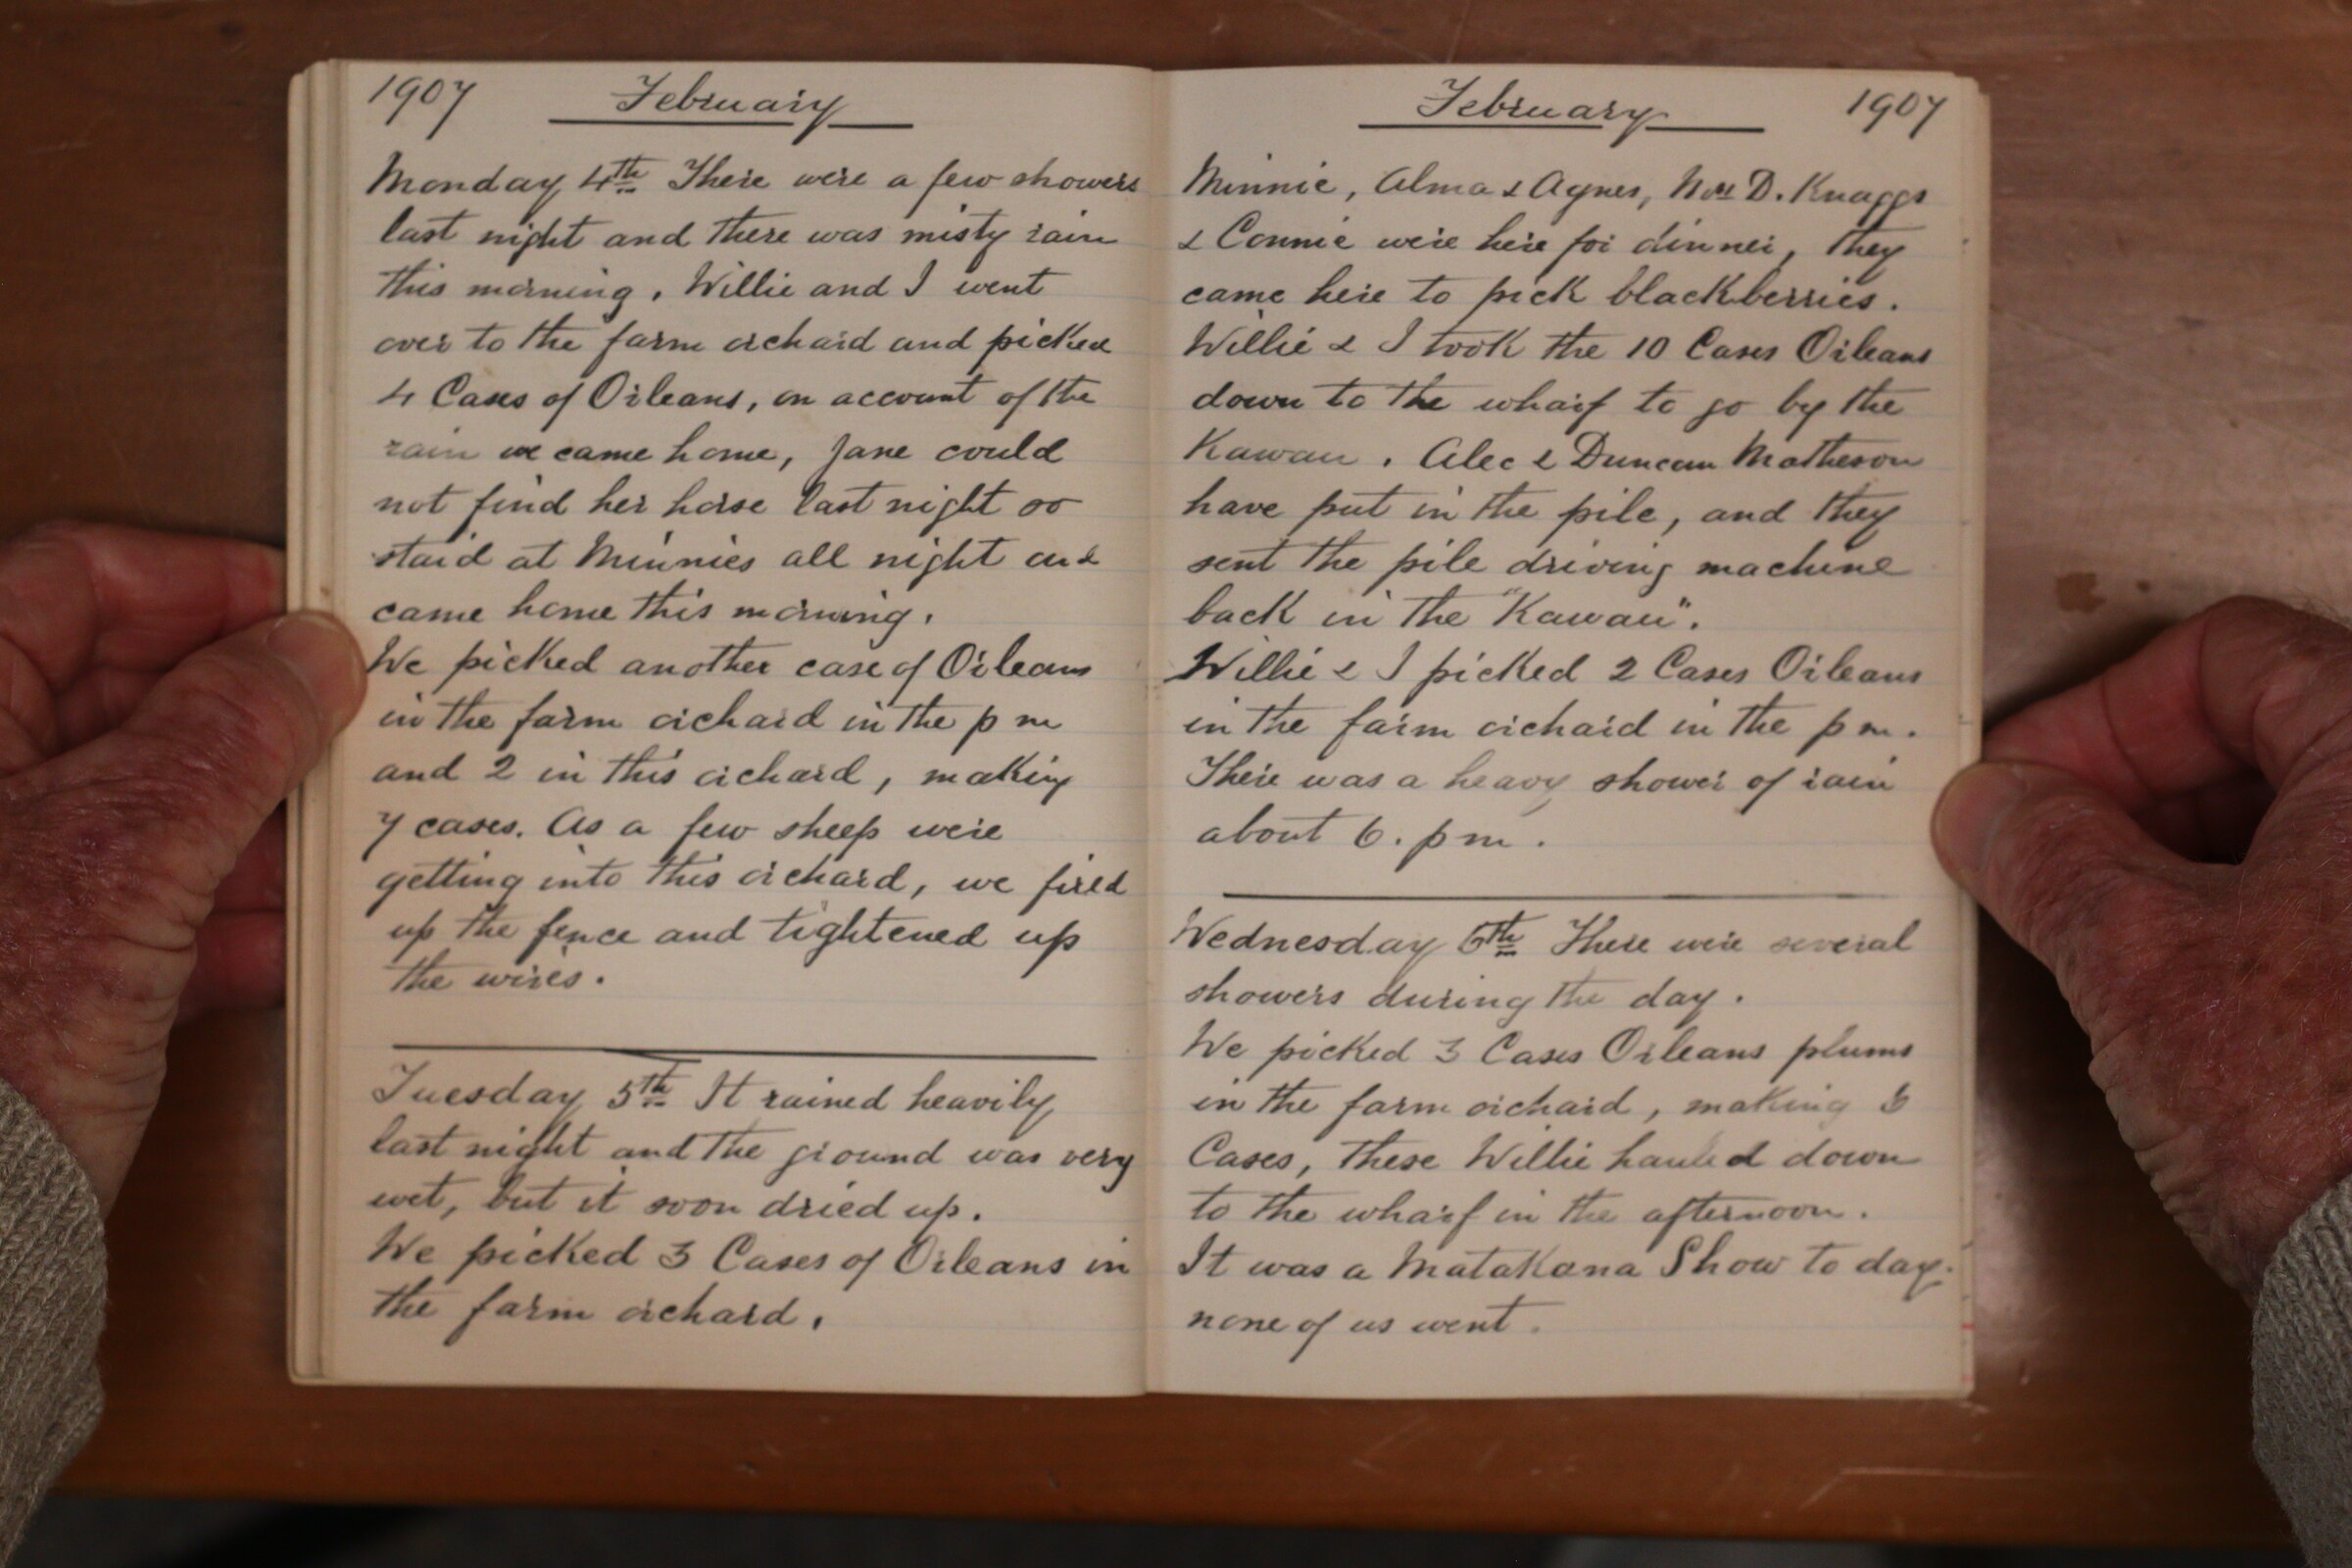 1907 February
Monday 4th There were a few showers
last night and there was misty rain
this morning. Willie and I went
over to the farm orchard and picked
4 Cases of Orleans, on account of the
rain we came home, Jane could
not find her horse last night so
staid at Minnies all night and
came home this morning.
We picked another case of Orleans
in the farm orchard in the p m
and 2 in this orchard, making
7 cases. As a few sheep were
getting into this orchard, we fixed
up the fence and tightened up
the wires.
Tuesday 5th It rained heavily
last night and the ground was very
wet, but it soon dried up.
We picked 3 Cases of Orleans in
the farm orchard.
February 1907
Minnie, Alma & Agnes, Mrs D. Knaggs
& Connie were here for dinner, they
came here to pick blackberries.
Willie & I took the 10 Cases Orleans
down to the wharf to go by the
Kawau. Alec & Duncan Matheson
have put in the pile, and they
sent the pile driving machine
back in the "Kawau".
Willie & I picked 2 Cases Orleans
in the farm orchard in the p m.
There was a heavy shower of rain
about 6. p m.
Wednesday 6th There were several
showers during the day.
We picked 3 Cases Orleans plums
in the farm orchard, making 5
Cases, these Willie hauled down
to the wharf in the afternoon.
It was a Matakana Show to day.
none of us went.